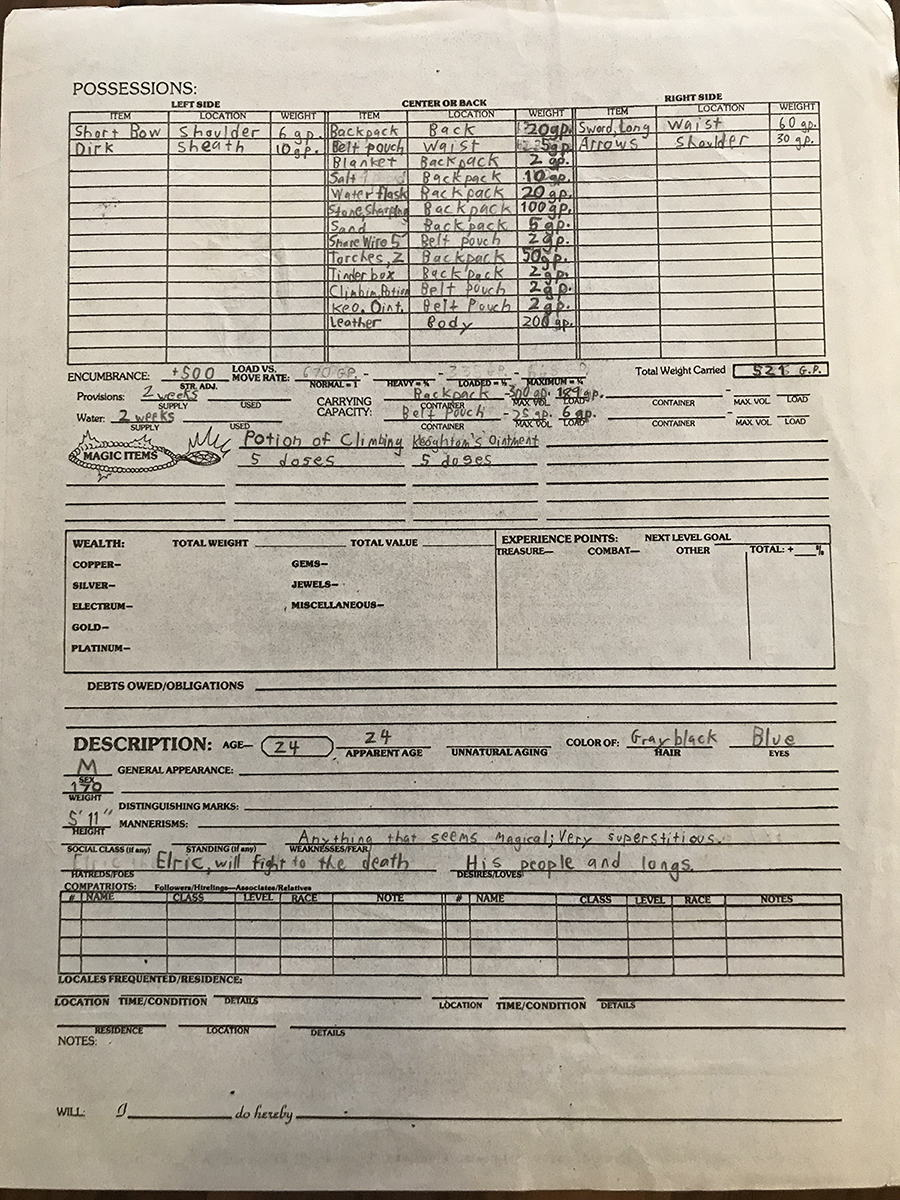 POSSESSIONS:
LEFT SIDE CENTER OR BACK RIGHT SIDE
ITEM LOCATION WEIGHT ITEM LOCATION WEIGHT ITEM LOCATION WEIGHT
Short Bow Shoulder 6 gp. Backpack Back 20gp. Sword, Long waist 60 gp.
Dirk Sheath 10gp. Belt pouch Waist 5gp. Arrows shoulder 30 gp.
Blanket Backpack 2 gp.
Salt Backpack 10gp.
Water flask Backpack 20gp.
Stone, Sharping Backpack 100gp.
Sand Backpack 5 gp.
Snare Wire 5' Belt pouch 2 gp.
Torches, 2 Backpack 50gp.
Tinderbox Backpack 2gp.
Climbin. Potion Belt Pouch 2gp.
Keo. Oint. Belt Pouch 2gp.
Leather Body 200 gp.
ENCUMBRANCE: +500 LOAD VS. MOVE RATE: 670 GP. - - - Total Weight Carried G.P.
STR. ADJ. NORMAL = 1 HEAVY = ¾ LOADED = ½ MAXIMUM = ¼
Provisions: 2 weeks CARRYING CAPACITY: Backpack -300 gp. 189 gp. - 
SUPPLY USED CONTAINER MAX VOL LOAD CONTAINER MAX VOL LOAD
Water: 2 weeks Belt Pouch -25 gp. 6 gp. -
SUPPLY USED CONTAINER MAX VOL LOAD CONTAINER MAX VOL LOAD
MAGIC ITEMS Potion of Climbing Keoghtom's Ointment
5 doses 5 doses
WEALTH: TOTAL WEIGHT TOTAL VALUE EXPERIENCE POINTS: NEXT LEVEL GOAL
TREASURE— COMBAT— OTHER TOTAL: + %
COPPER— GEMS—
SILVER— JEWELS—
ELECTRUM— MISCELLANEOUS—
GOLD—
PLATINUM—
DEBTS OWED/OBLIGATIONS
DESCRIPTION: AGE— 24 24 COLOR OF: Gray black Blue
APPARENT AGE UNNATURAL AGING HAIR EYES
M GENERAL APPEARANCE:
SEX
170
WEIGHT
DISTINGUISHING MARKS:
5' 11" MANNERISMS:
HEIGHT
Anything that seems magical; Very superstitious.
SOCIAL CLASS (if any) STANDING (if any) WEAKNESSES/FEAR
Elric, will fight to the death His people and longs.
HATREDS/FOES DESIRES/LOVES
COMPATRIOTS: Followers/Hirelings—Associates/Relatives
# NAME CLASS LEVEL RACE NOTE # NAME CLASS LEVEL RACE NOTES
LOCALES FREQUENTED/RESIDENCE:
LOCATION TIME/CONDITION DETAILS LOCATION TIME/CONDITION DETAILS
RESIDENCE LOCATION DETAILS
NOTES:
WILL: I do hereby